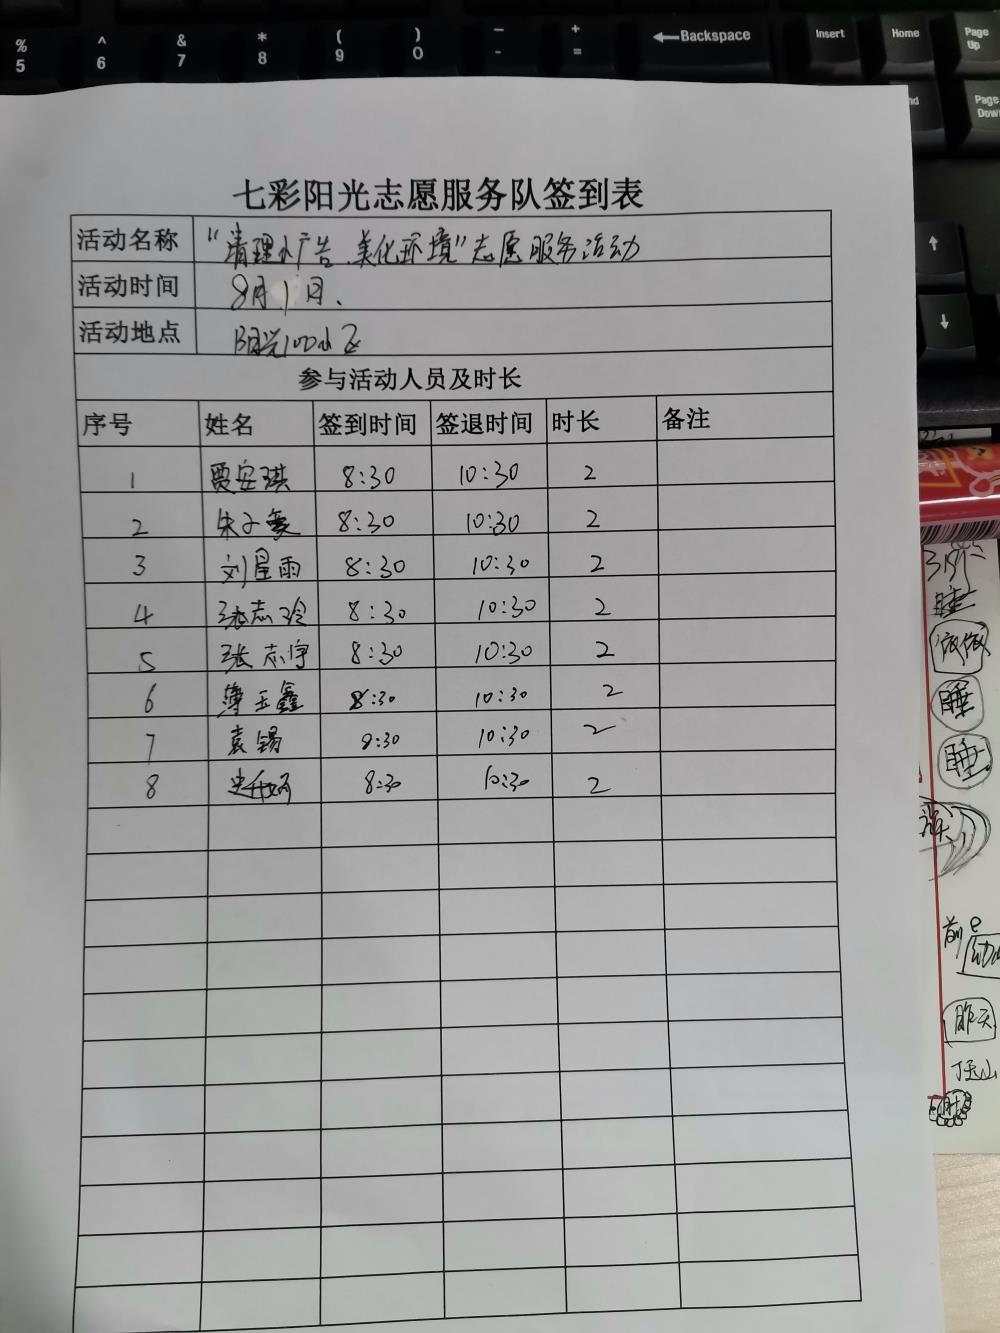 % ^ & * ( ) — +
5 6 7 8 9 0 - =
←Backspace
Insert Home Page Up
nd Page Down
七彩阳光志愿服务队签到表
活动名称 “清理小广告、美化环境”志愿服务活动
活动时间 8月1日.
活动地点 阳光100小区
参与活动人员及时长
序号 姓名 签到时间 签退时间 时长 备注
1 贾安琪 8:30 10:30 2
2 朱子雯 8:30 10:30 2
3 刘星雨 8:30 10:30 2
4 张志玲 8:30 10:30 2
5 张志宇 8:30 10:30 2
6 薄玉鑫 8:30 10:30 2
7 袁锡 8:30 10:30 2
8 8:30 10:30 2
睡
做做
睡
睡
前
昨天